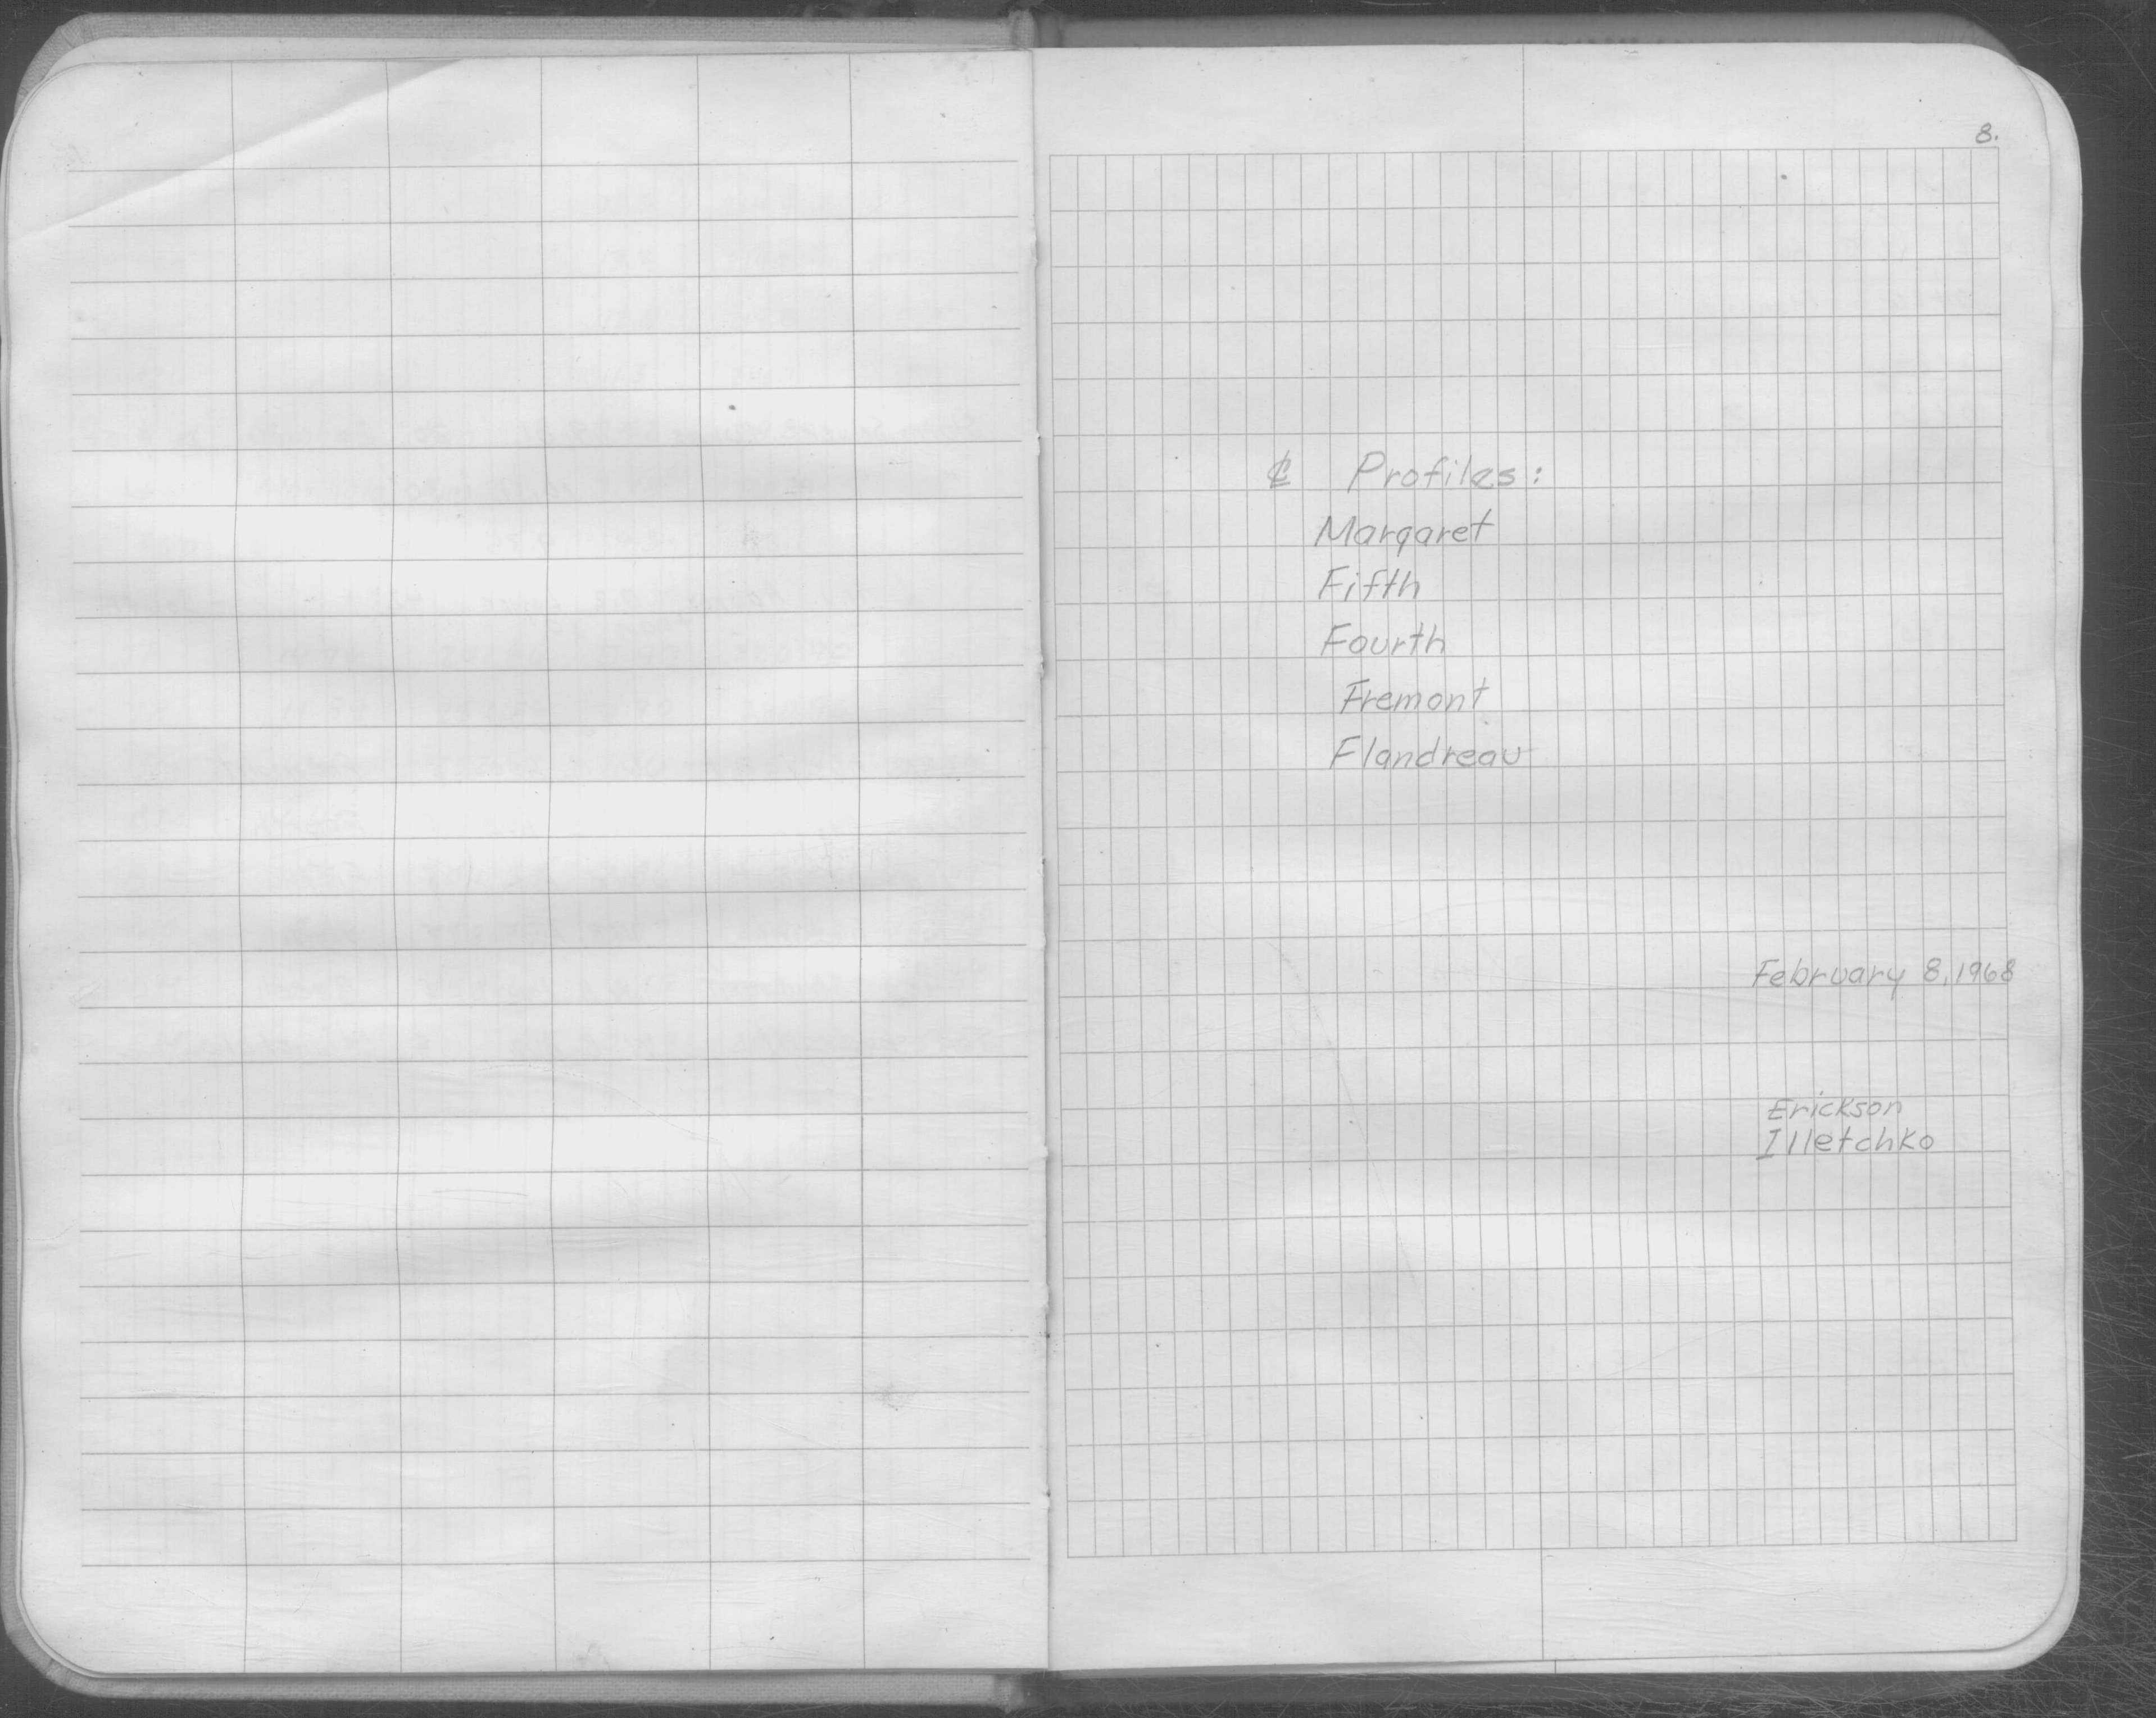 8.
℄ Profiles:
Margaret
Fifth
Fourth
Fremont
Flandreau
February 8, 1968
Erickson
Illetchko